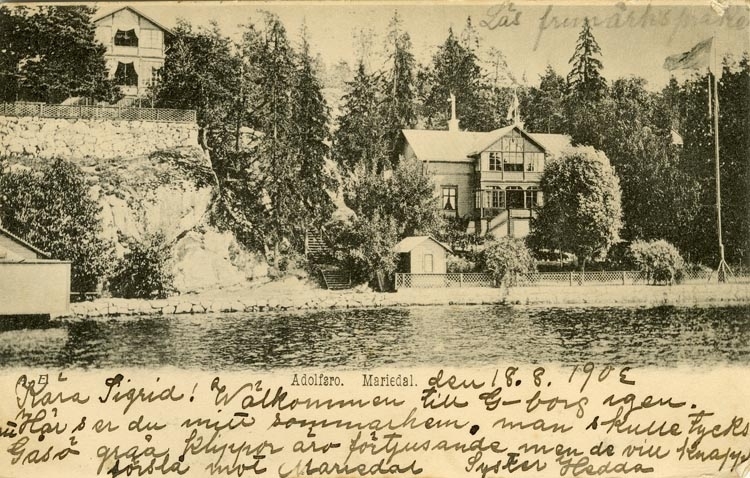 Läs frimärksspråket
Adolfsro. Mariedal. den 18. 8. 1902
Kära Sigrid! Wälkommen till G-borg igen.
Här ser du mitt sommarhem, man skulle tycka
Gåsö gråa klippor äro förtjusande men de vill knappt
förslå mot Mariedal Syster Hedda